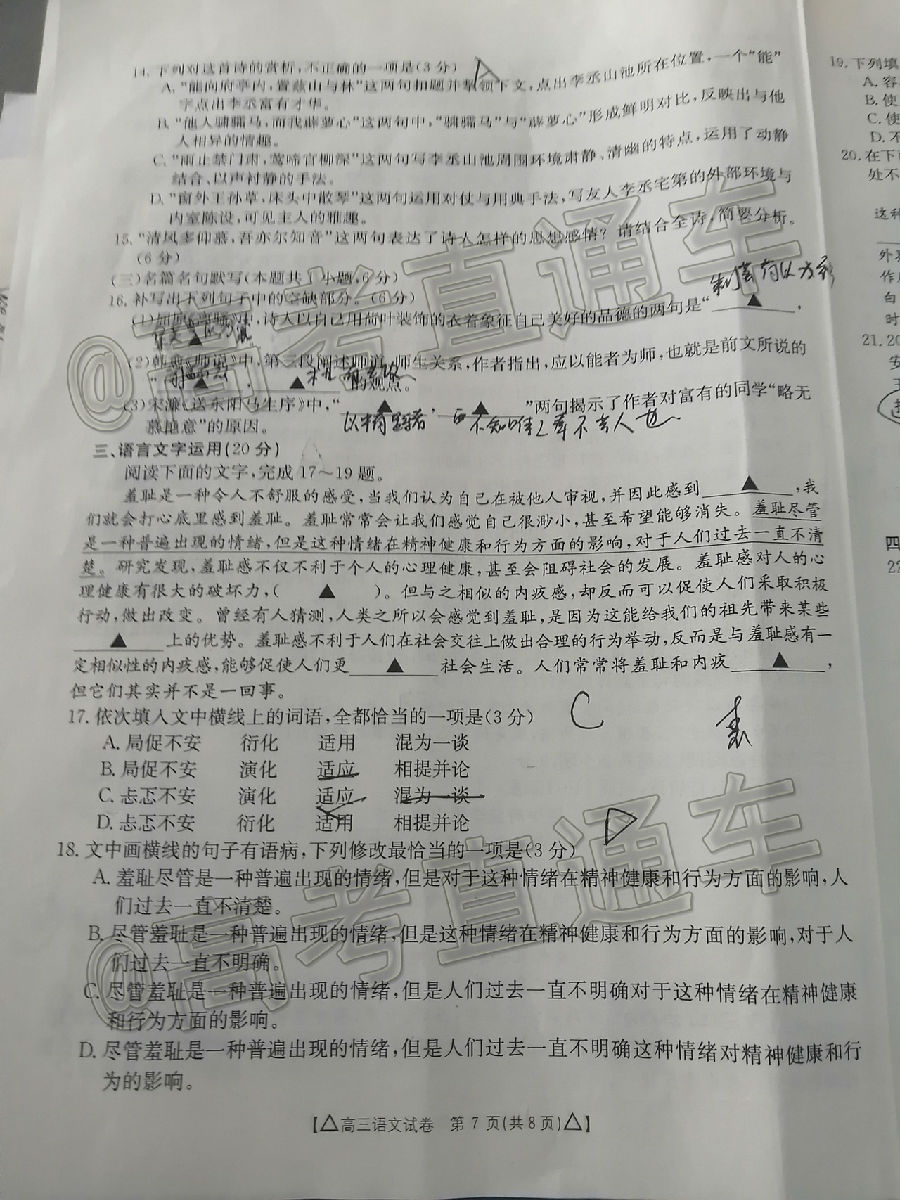 14. 下列对这首诗的赏析,不正确的一项是(3分)
A. “能向府亭内,置兹山与林”这两句扣题并擎领下文,点出李丞山池所在位置,一个“能”
字点出李丞富有才华。
B. “他人骕骦马,而我薜萝心”这两句中,“骕骦马”与“薜萝心”形成鲜明对比,反映出与他
人相异的情趣。
C. “雨止禁门肃,莺啼官柳深”这两句写李丞山池周围环境肃静、清幽的特点,运用了动静
结合、以声衬静的手法。
D. “窗外王孙草,床头中散琴”这两句运用对仗与用典手法,写友人李丞宅第的外部环境与
内室陈设,可见主人的雅趣。
15. “清风多仰慕,吾亦尔知音”这两句表达了诗人怎样的思想感情?请结合全诗,简要分析。
(6分)
(三)名篇名句默写(本题共1小题,6分)
16. 补写出下列句子中的空缺部分。(6分)
(1)屈原《离骚》中,诗人以自己用荷叶装饰的衣着象征自己美好的品德的两句是“ ▲ ,
▲
(2)韩愈《师说》中,第二段阐述师道、师生关系,作者指出,应以能者为师,也就是前文所说的
“ , ▲ 的观点。
(3)宋濂《送东阳马生序》中,“ ▲ , ▲ ”两句揭示了作者对富有的同学“略无
慕艳意”的原因。
以中有足乐者 不知 之 不 人也
三、语言文字运用(20分)
阅读下面的文字,完成17~19题。
羞耻是一种令人不舒服的感受,当我们认为自己在被他人审视,并因此感到 ▲ ,我
们就会打心底里感到羞耻。羞耻常常会让我们感觉自己很渺小,甚至希望能够消失。羞耻尽管
是一种普遍出现的情绪,但是这种情绪在精神健康和行为方面的影响,对于人们过去一直不清
楚。研究发现,羞耻感不仅不利于个人的心理健康,甚至会阻碍社会的发展。羞耻感对人的心
理健康有很大的破坏力,( ▲ )。但与之相似的内疚感,却反而可以促使人们采取积极
行动,做出改变。曾经有人猜测,人类之所以会感到羞耻,是因为这能给我们的祖先带来某些
▲ 上的优势。羞耻感不利于人们在社会交往上做出合理的行为举动,反而是与羞耻感有一
定相似性的内疚感,能够促使人们更 ▲ 社会生活。人们常常将羞耻和内疚 ▲ ,
但它们其实并不是一回事。
17. 依次填入文中横线上的词语,全都恰当的一项是(3分) C
A. 局促不安 衍化 适用 混为一谈
B. 局促不安 演化 适应 相提并论
C. 忐忑不安 演化 适应 混为一谈
D. 忐忑不安 衍化 适用 相提并论
18. 文中画横线的句子有语病,下列修改最恰当的一项是(3分) D
A. 羞耻尽管是一种普遍出现的情绪,但是对于这种情绪在精神健康和行为方面的影响,人
们过去一直不清楚。
B. 尽管羞耻是一种普遍出现的情绪,但是这种情绪在精神健康和行为方面的影响,对于人
们过去一直不明确。
C. 尽管羞耻是一种普遍出现的情绪,但是人们过去一直不明确对于这种情绪在精神健康
和行为方面的影响。
D. 尽管羞耻是一种普遍出现的情绪,但是人们过去一直不明确这种情绪对精神健康和行
为的影响。
【△高三语文试卷 第7页(共8页)△】
19. 下列填
A. 容
B. 使
C. 使
D. 不
20. 在下
处不
这种
外界
作用
白
时
21. 20
安
四
22
@高考直通车
@高考直通车